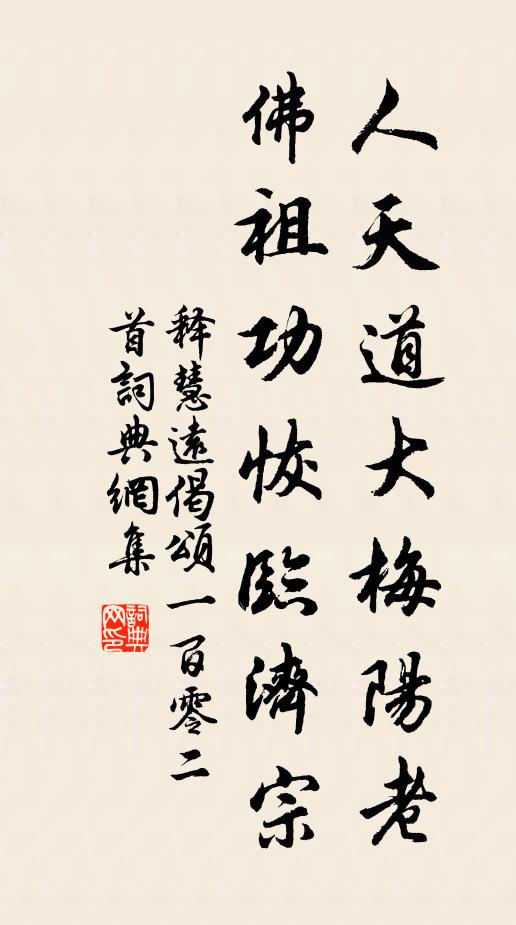 人天道大梅陽老
佛祖功恢臨濟宗
释慧遠偈頌一百零二
首詞典網集
詞典网印